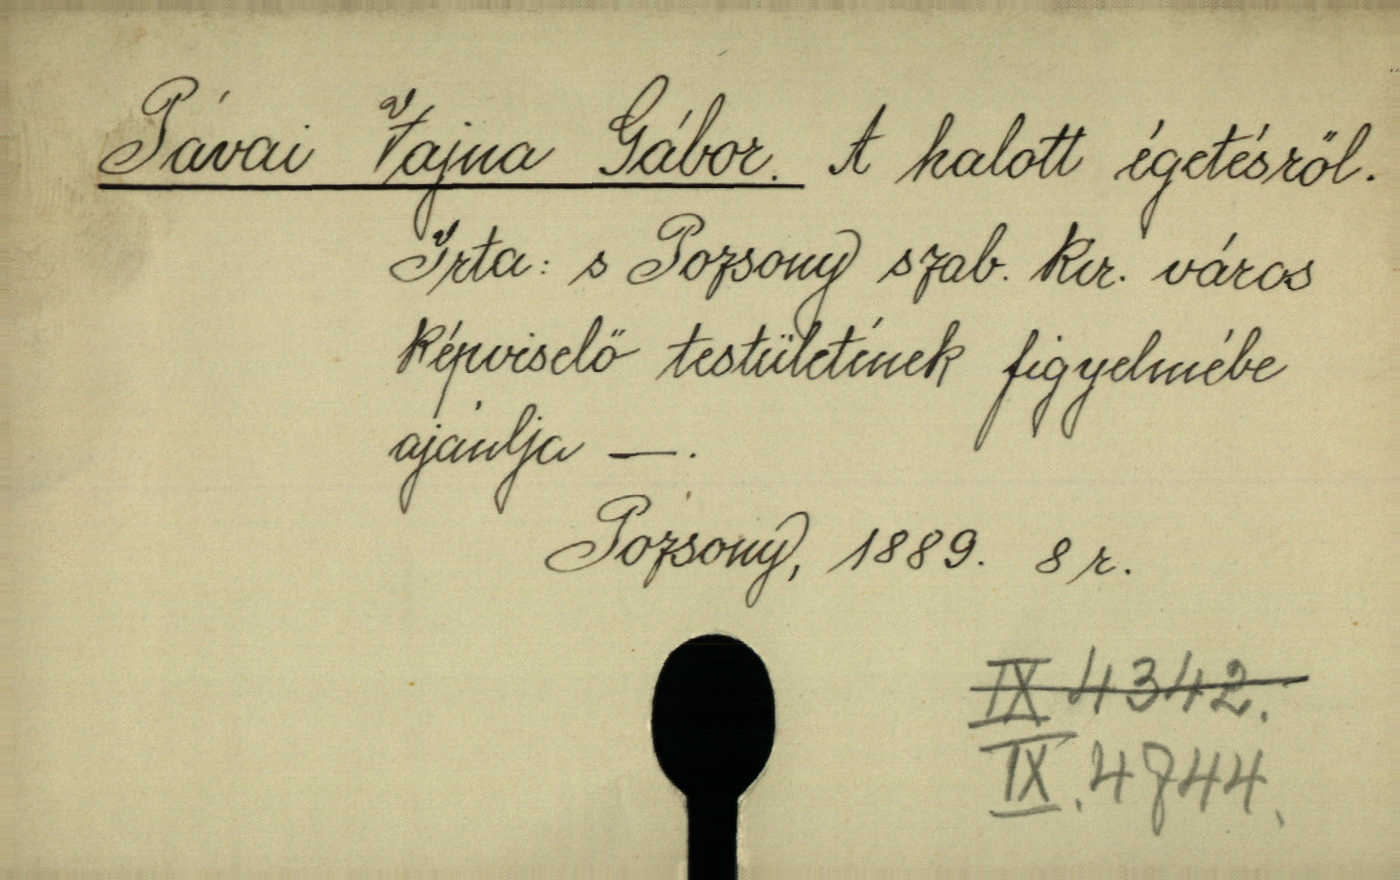 Pávai Vajna Gábor. A halott égetésről.
Irta: s Pozsony szab. kir. város
képviselő testületének figyelmébe
ajánlja —.
Pozsony, 1889. 8 r.
IX 4342.
IX. 4744.